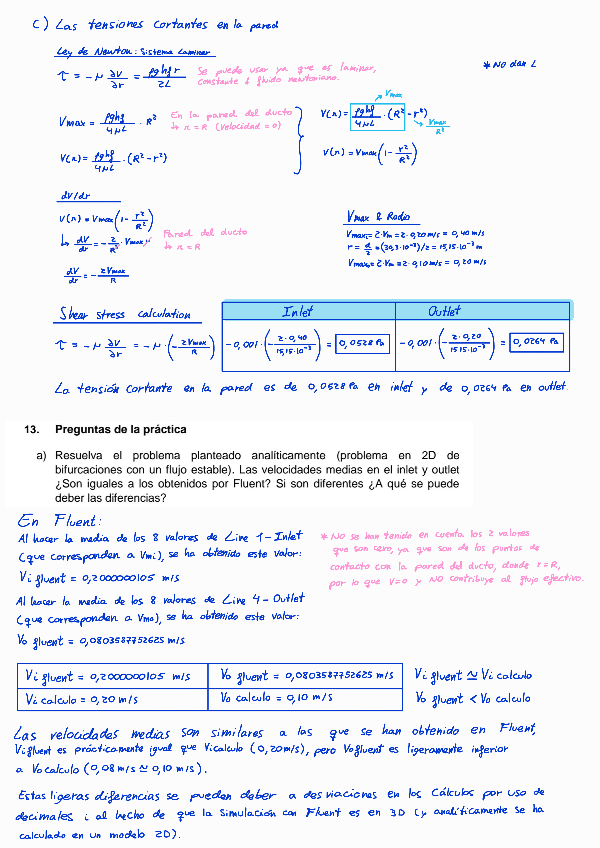 c) Las tensiones cortantes en la pared
Ley de Newton: Sistema Laminar
τ = -μ ∂V/∂r = ρghf r / 2L
Se puede usar ya que es laminar,
constante y fluido newtoniano.
* NO dan L
Vmax = ρghf/4μL · R²
En la pared del ducto
↳ r = R (Velocidad = 0)
V(r) = ρghf/4μL · (R² - r²)
V(r) = ρghf/4μL · (R² - r²)
Vmax
Vmax/R²
V(r) = Vmax (1 - r²/R²)
dV/dr
V(r) = Vmax (1 - r²/R²)
↳ dV/dr = - 2/R² · Vmax r
Pared del ducto
↳ r = R
dV/dr = - 2Vmax/R
Vmax & Radio
Vmaxi = 2·Vm = 2·0,20 m/s = 0,40 m/s
r = d/2 = (30,3·10⁻³)/2 = 15,15·10⁻³ m
Vmaxo = 2·Vm = 2·0,10 m/s = 0,20 m/s
Shear stress calculation
τ = -μ ∂V/∂r = -μ · (- 2Vmax/R)
Inlet
Outlet
-0,001 · (- 2·0,40 / 15,15·10⁻³) = 0,0528 Pa
-0,001 · (- 2·0,20 / 15,15·10⁻³) = 0,0264 Pa
La tensión cortante en la pared es de 0,0528 Pa en inlet y de 0,0264 Pa en outlet.
13. Preguntas de la práctica
a) Resuelva el problema planteado analíticamente (problema en 2D de
bifurcaciones con un flujo estable). Las velocidades medias en el inlet y outlet
¿Son iguales a los obtenidos por Fluent? Si son diferentes ¿A qué se puede
deber las diferencias?
En Fluent:
Al hacer la media de los 8 valores de Line 1-Inlet
(que corresponden a Vmi), se ha obtenido este valor:
Vi fluent = 0,2000000105 m/s
Al hacer la media de los 8 valores de Line 4-Outlet
(que corresponden a Vmo), se ha obtenido este valor:
Vo fluent = 0,0803587752625 m/s
* NO se han tenido en cuenta los 2 valores
que son cero, ya que son de los puntos de
contacto con la pared del ducto, donde r=R,
por lo que V=0 y NO contribuye al flujo efectivo.
Vi fluent = 0,2000000105 m/s
Vo fluent = 0,0803587752625 m/s
Vi fluent ≃ Vi calculo
Vi calculo = 0,20 m/s
Vo calculo = 0,10 m/s
Vo fluent < Vo calculo
Las velocidades medias son similares a las que se han obtenido en Fluent,
Vi fluent es prácticamente igual que Vi calculo (0,20 m/s), pero Vo fluent es ligeramente inferior
a Vo calculo (0,08 m/s ≃ 0,10 m/s).
Estas ligeras diferencias se pueden deber a desviaciones en los Cálculos por uso de
decimales i al hecho de que la Simulación con Fluent es en 3D (y analíticamente se ha
calculado en un modelo 2D).